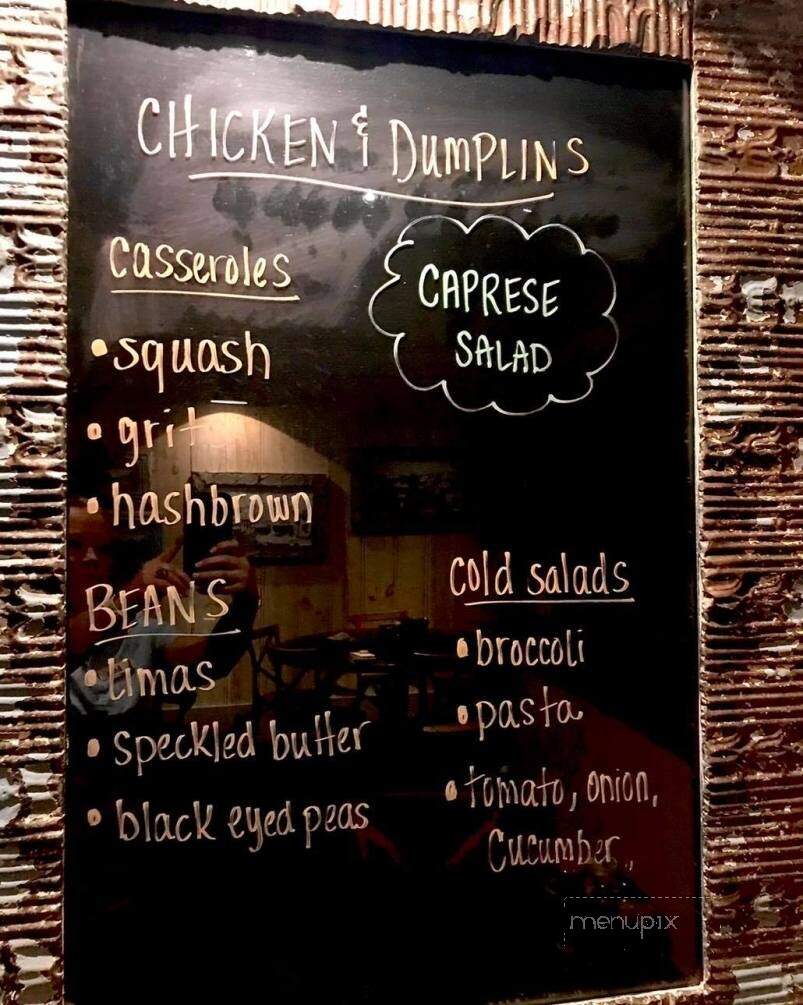 CHICKEN & DUMPLINS
casseroles
CAPRESE
SALAD
• squash
• grit
• hashbrown
BEANS
• limas
• speckled butter
• black eyed peas
cold salads
• broccoli
• pasta
• tomato, onion,
cucumber,,
menupix